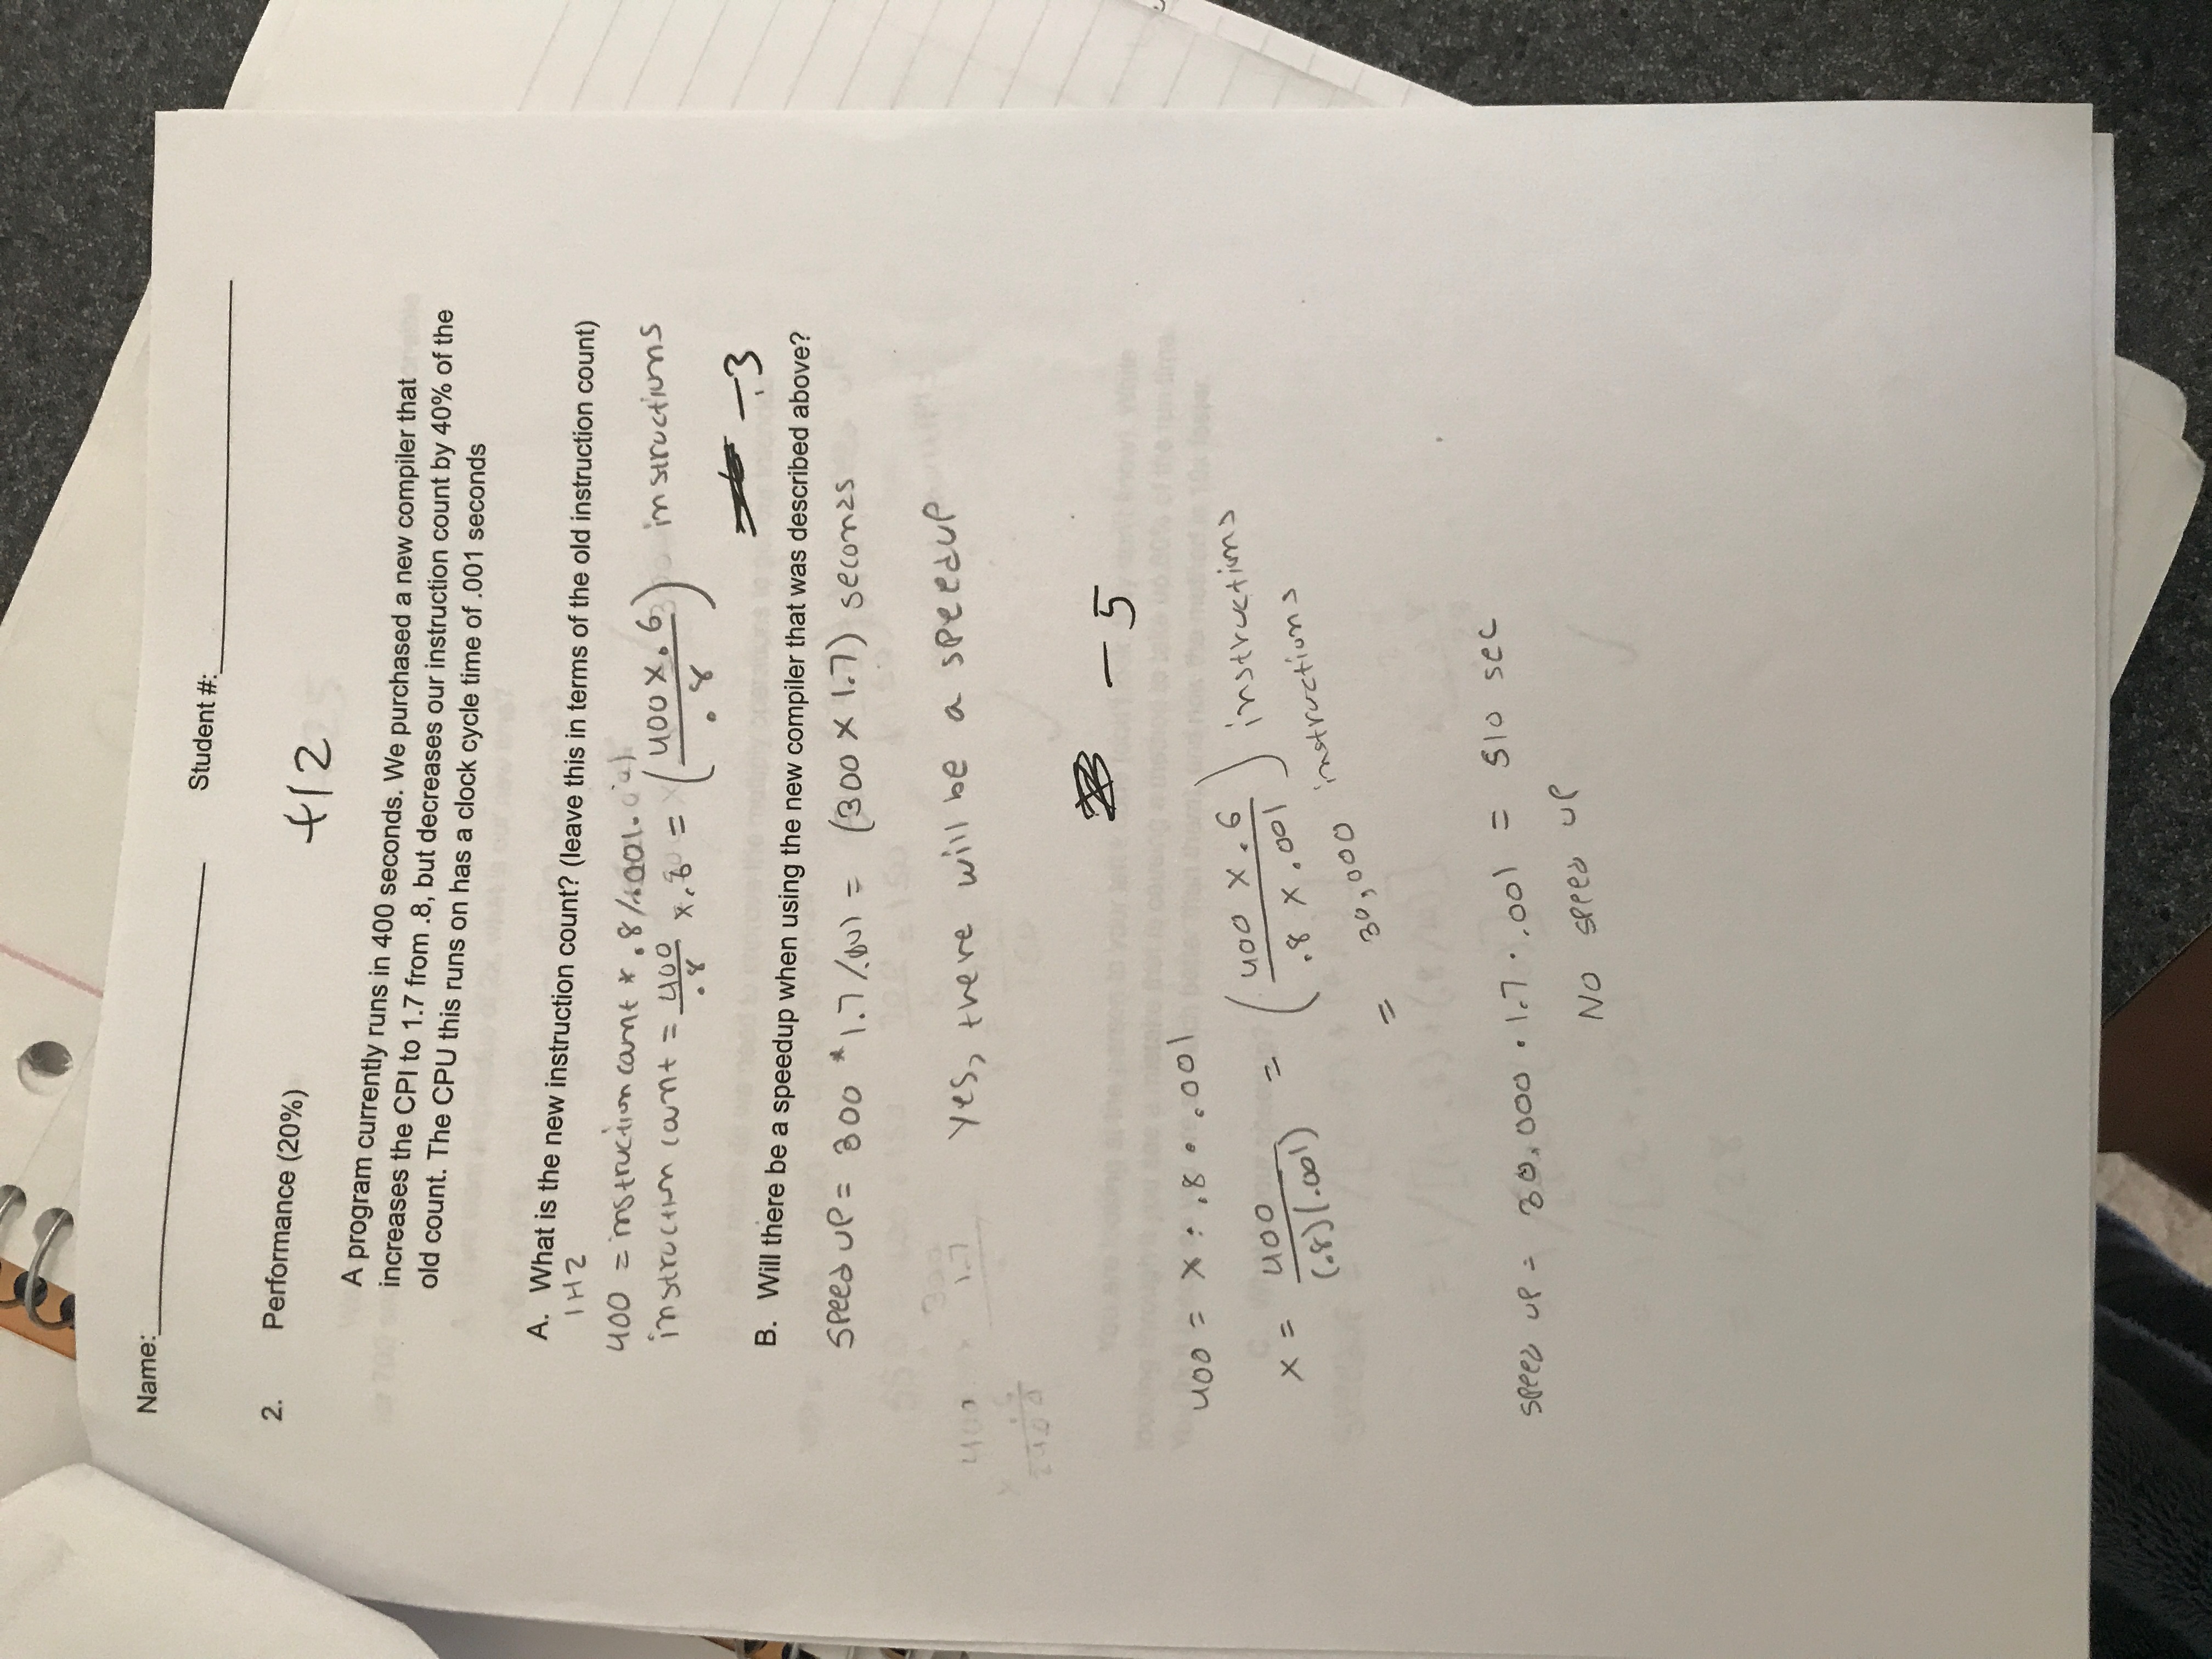 Name:
Student #:
2. Performance (20%)
+12
A program currently runs in 400 seconds. We purchased a new compiler that
increases the CPI to 1.7 from .8, but decreases our instruction count by 40% of the
old count. The CPU this runs on has a clock cycle time of .001 seconds
A. What is the new instruction count? (leave this in terms of the old instruction count)
1HZ
400 = instruction count * .8 / .001
instruction count = 400/.8 x .6 = (400 x .6 / .8) instructions
-3
B. Will there be a speedup when using the new compiler that was described above?
speed up = 300 * 1.7 / = (300 x 1.7) seconds
300
400 x 1.7
Yes, there will be a speedup
- 5
400 = x · .8 · .001
x = 400/(.8)(.001) = (400 x .6 / .8 x .001) instructions
= 30,000 instructions
speed up = 30,000 · 1.7 · .001 = 510 sec
No speed up